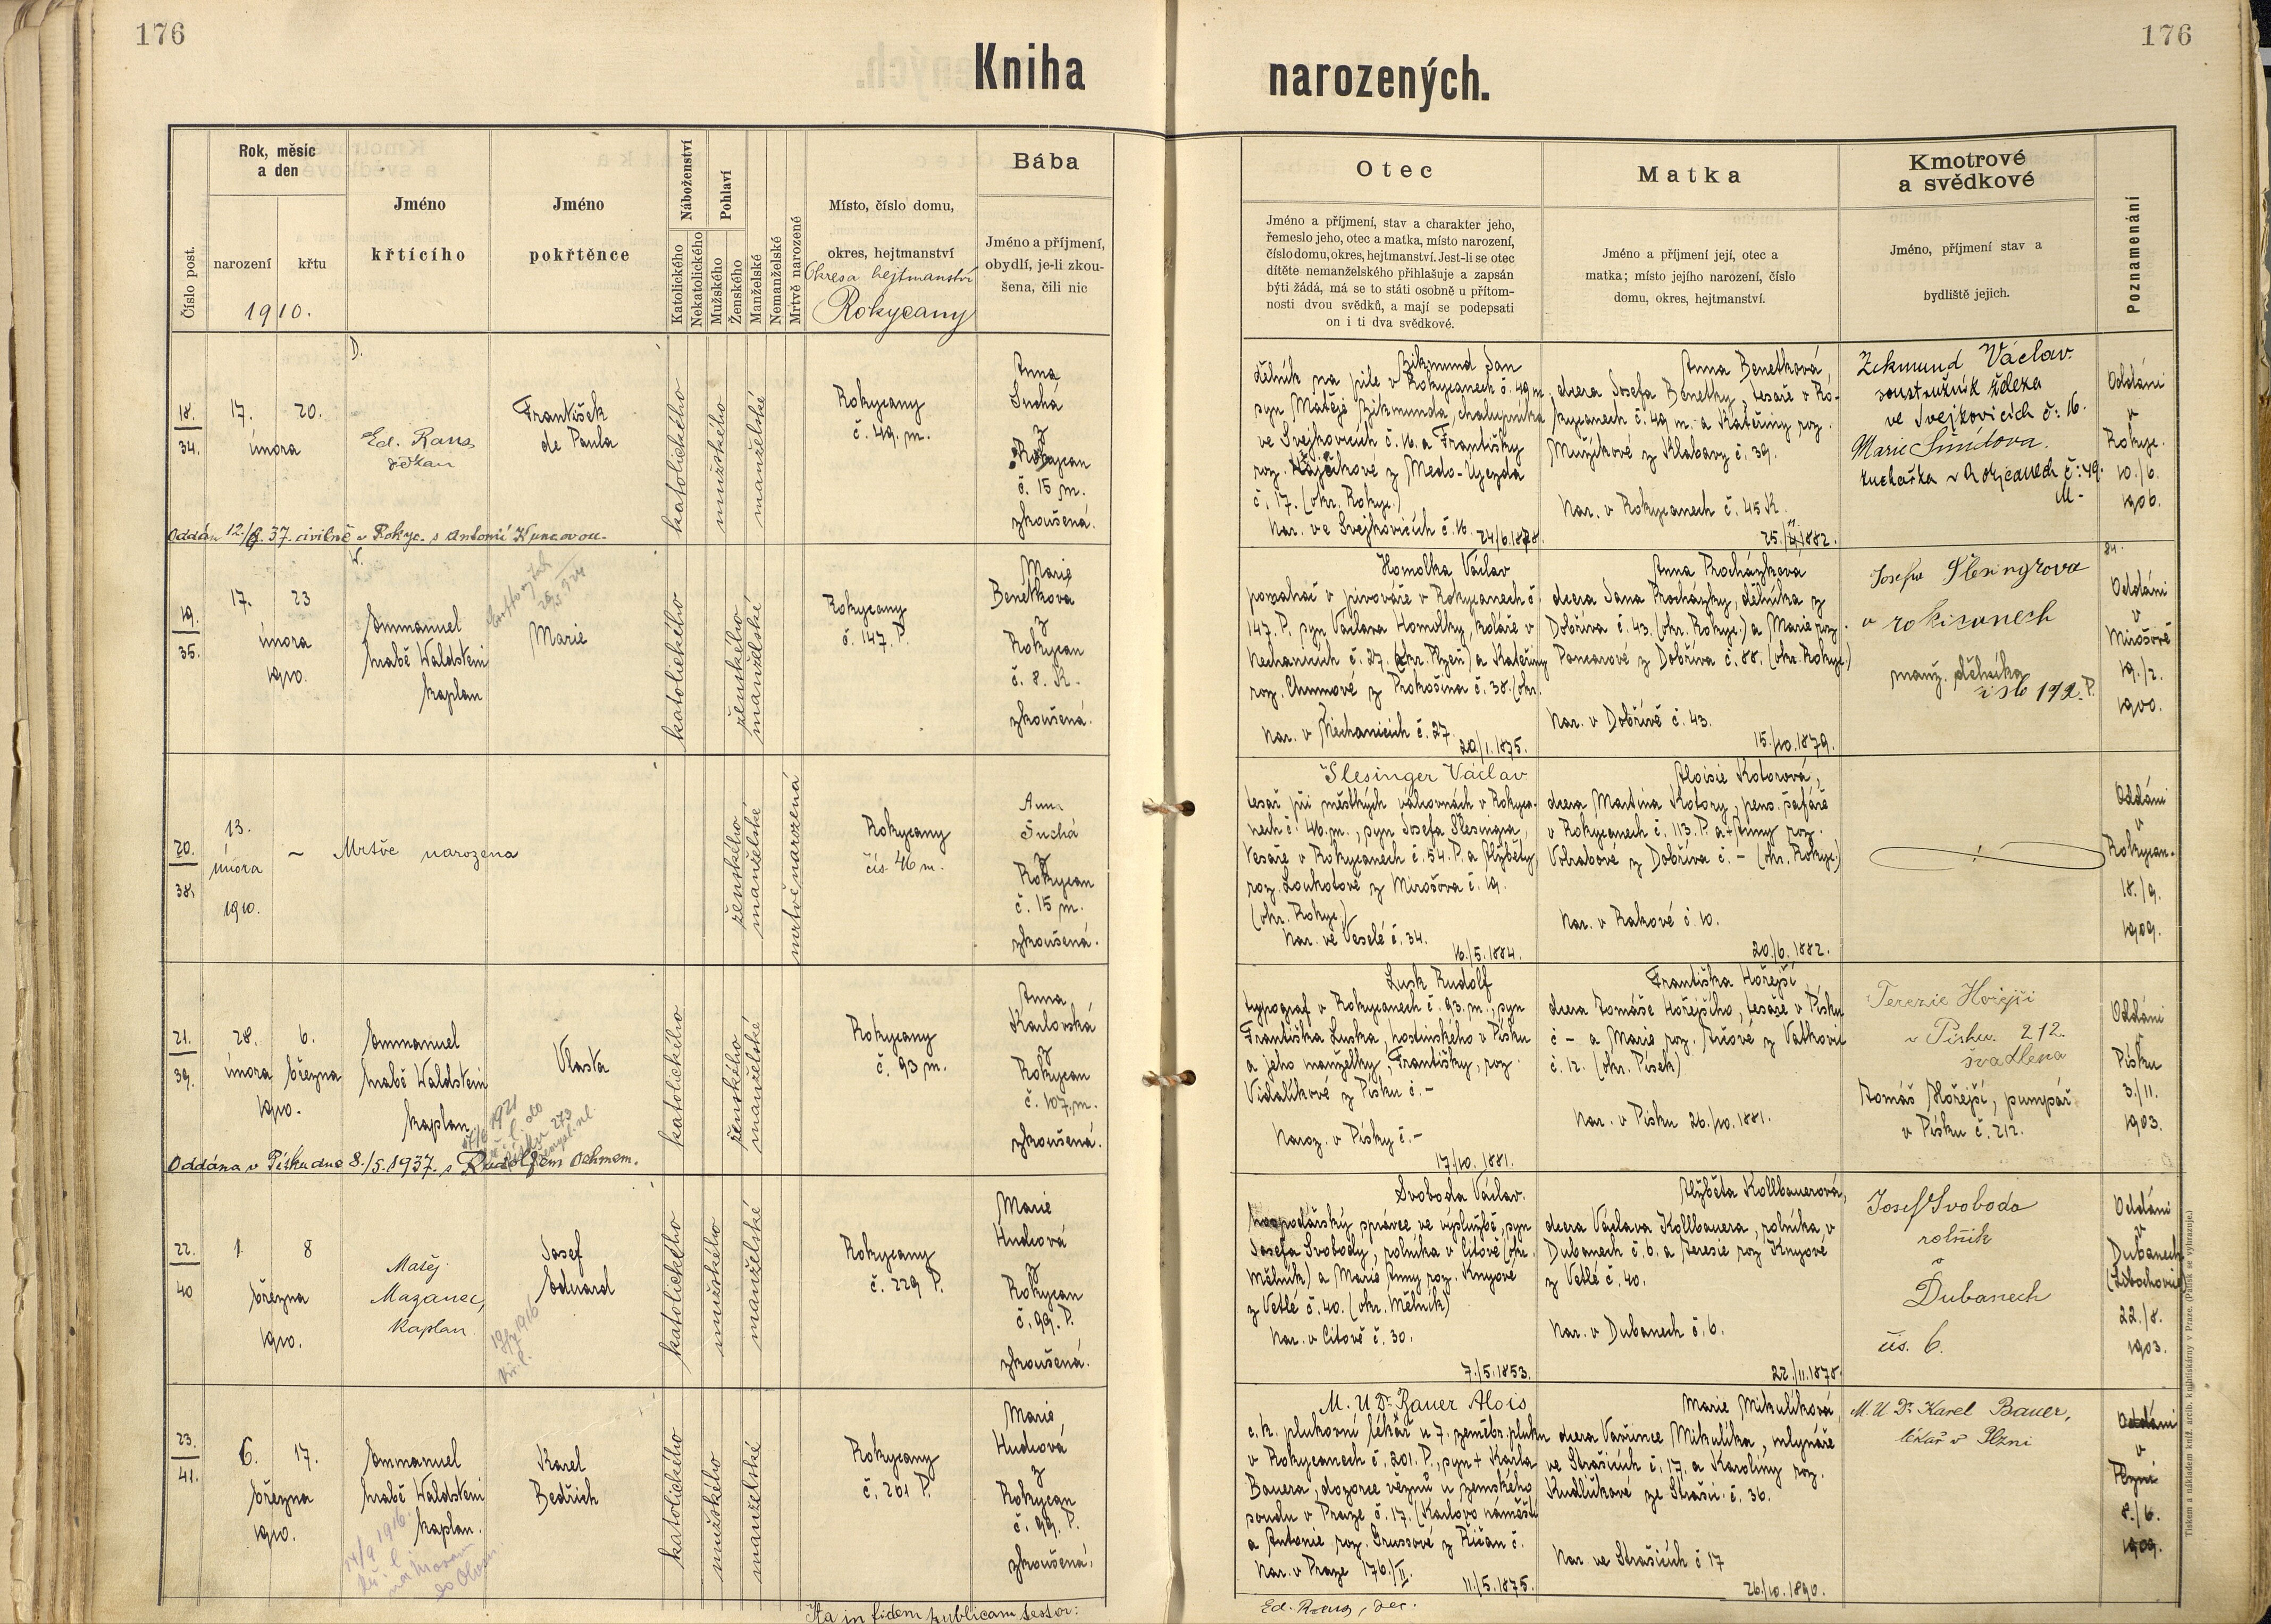 176
176
Kniha
narozených.
Číslo post.
Rok, měsíc
a den
narození
křtu
1910.
Jméno
křtícího
Jméno
pokřtěnce
Náboženství
Katolického
Nekatolického
Pohlaví
Mužského
Ženského
Manželské
Nemanželské
Mrtvě narozené
Místo, číslo domu,
okres, hejtmanství
Okres a hejtmanství
Rokycany
Bába
Jméno a příjmení,
obydlí, je-li zkou-
šena, čili nic
Otec
Jméno a příjmení, stav a charakter jeho,
řemeslo jeho, otec a matka, místo narození,
číslo domu, okres, hejtmanství. Jest-li se otec
dítěte nemanželského přihlašuje a zapsán
býti žádá, má se to státi osobně u přítom-
nosti dvou svědků, a mají se podepsati
on i ti dva svědkové.
Matka
Jméno a příjmení její, otec a
matka; místo jejího narození, číslo
domu, okres, hejtmanství.
Kmotrové
a svědkové
Jméno, příjmení stav a
bydliště jejich.
Poznamenání
18.
34.
17. 20.
února
D.
Ed. Rans
děkan
František
de Paula
katolického
mužského
manželské
Rokycany
č. 49. m.
Anna
Suchá
z
Rokycan
č. 15 m.
zkoušená.
Oddán 12./9. 37. civilně v Rokyc. s Antonií Kuncovou.
Zikmund Jan
dělník na pile v Rokycanech č. 49 m
syn Matěje Zikmunda, chalupníka
ve Svejkovicích č. 16. a Františky
roz. Hájíčkové z Medo-Ujezda
č. 17. (okr. Rokyc.)
Nar. ve Svejkovicích č. 16. 24/6.1878.
Anna Benetková,
dcera Josefa Benetky, tesaře v Ro-
kycanech č. 49 m. a Kateřiny roz.
Mužíkové z Klabavy č. 39.
Nar. v Rokycanech č. 45 K.
25./11.1882.
Zikmund Václav
soustružník železa
ve Svejkovicích č: 16.
Marie Šmídova.
kuchařka v Rokycanech č: 49.
M.
Oddáni
v
Rokyc.
10./6.
1906.
19.
35.
17. 23
února
1910.
Emmanuel
hrabě Waldstein
kaplan
Marie
katolického
ženského
manželské
Rokycany
č. 147. P.
Marie
Benetkova
z
Rokycan
č. 8. K.
zkoušená.
Homolka Václav
pomahač v pivováře v Rokycanech č.
147. P. syn Václava Homolky, koláře v
Nechanicích č. 27. (okr. Plzeň) a Kateřiny
roz. Chumové z Prokošina č. 38. (okr.
Nar. v Nechanicích č. 27.
20/1.1875.
Anna Procházkova
dcera Jana Procházky, dělníka z
Dobříva č. 43. (okr. Rokyc.) a Marie roz.
Pancarové z Dobříva č. 88. (okr. Rokyc.)
Nar. v Dobřívě č. 43.
15./10.1879.
Josefa Slesingrova
v rokicanech
manž. dělníka
čislo 172. P.
84.
Oddáni
v
Mirošově
19./2.
1900.
20.
38.
13.
února
1910.
— Mrtvě narozena
ženského
manželské
mrtvě narozená
Rokycany
čís. 46 m.
Anna
Suchá
z
Rokycan
č. 15 m.
zkoušená.
Slesinger Václav
tesař při městkých válcovnách v Rokyca-
nech č. 46. m., syn Josefa Slesingra,
tesaře v Rokycanech č. 54. P. a Alžběty,
roz. Loukotové z Mirošova č. 19.
(okr. Rokyc.)
Nar. ve Veselé č. 34.
16./5.1884.
Aloisie Kotorová,
dcera Martina Kotory, pens. šafáře
v Rokycanech č. 113. P. a + Anny roz.
Votrabové z Dobříva č. – (okr. Rokyc)
Nar. v Rakové č. 10.
20./6. 1882.
Oddáni
v
Rokycan.
18./9.
1909.
21.
39.
28. 6.
února března
1910.
Emmanuel
hrabě Waldstein
kaplan.
Vlasta
katolického
ženského
manželské
Rokycany
č. 93 m.
Anna
Karlovská
z
Rokycan
č. 107. m.
zkoušená.
Oddána v Písku dne 8./5.1937. s Rudolfem Oehmem.
Lusk Rudolf
typograf v Rokycanech č. 93. m., syn
Františka Luska, hostinského v Písku
a jeho manželky, Františky, roz.
Vidalíkové z Písku č. –
Naroz. v Písky č. –
17/10. 1881.
Františka Hořejší
dcera Tomáše Hořejšího, tesaře v Písku
č – a Marie roz. Aršové z Vatkovic
č. 12. (okr. Písek)
Nar. v Písku 26./10.1881.
Terezie Hořejši
v Pisku. 212.
švadlena
Tomáš Hořejší, pumpař
v Písku č. 212.
Oddáni
v
Písku
3./11.
1903.
22.
40
1 8
března
1910.
Matěj
Mazanec,
kaplan
Josef
Eduard
19/7 1916
katolického
mužského
manželské
Rokycany
č. 229 P.
Marie
Hudcová
z
Rokycan
č. 99. P.
zkoušená.
Svoboda Václav.
hospodářský správce ve výslužbě, syn
Josefa Svobody, rolníka v Citově (okr.
Mělník) a Marie Anny roz. Knyové
z Vetlé č. 40. (okr. Mělník)
Nar. v Citově č. 30.
7./5.1853.
Alžběta Kollbauerová,
dcera Václava Kollbauera, rolníka, v
Dubanech č. 6. a Teresie roz Knyové
z Vetlé č. 40.
Nar. v Dubanech č. 6.
22./11.1878.
Josef Svoboda
rolnik
v
Dubanech
čís. 6.
Oddáni
v
Dubanech
(Libochovic)
22./8.
1903.
23.
41.
6. 17.
března
1910.
Emmanuel
hrabě Waldstein
kaplan.
Karel
Bedřich
14/9 1916.
katolického
mužského
manželské
Rokycany
č. 201 P.
Marie
Hudcová
z
Rokycan
č. 99. P.
zkoušená.
M. U Dr. Bauer Alois
c. k. plukovní lékař u 7. zeměbr. pluku
v Rokycanech č. 201. P., syn + Karla
Bauera, dozorce vězňů u zemského
soudu v Praze č. 17. (Karlovo náměstí
a Antonie roz. Grussové z Řičan č.
Nar. v Praze 176./II.
11./5.1875.
Marie Mikulíková,
dcera Vavřince Mikulíka, mlynáře
ve Strašicích č. 17. a Karoliny roz.
Kudličkové ze Strašic č. 36.
Nar. ve Strašicích č 17
26./10.1890.
M. U Dr. Karel Bauer,
lékař v Plzni
Oddáni
v
Plzni
8./6.
1909.
Ita in fidem publicam testor:
Ed. Rans, děk.
Tiskem a nákladem kníž. arcib. knihtiskárny v Praze. (Patisk se vyhrazuje.)